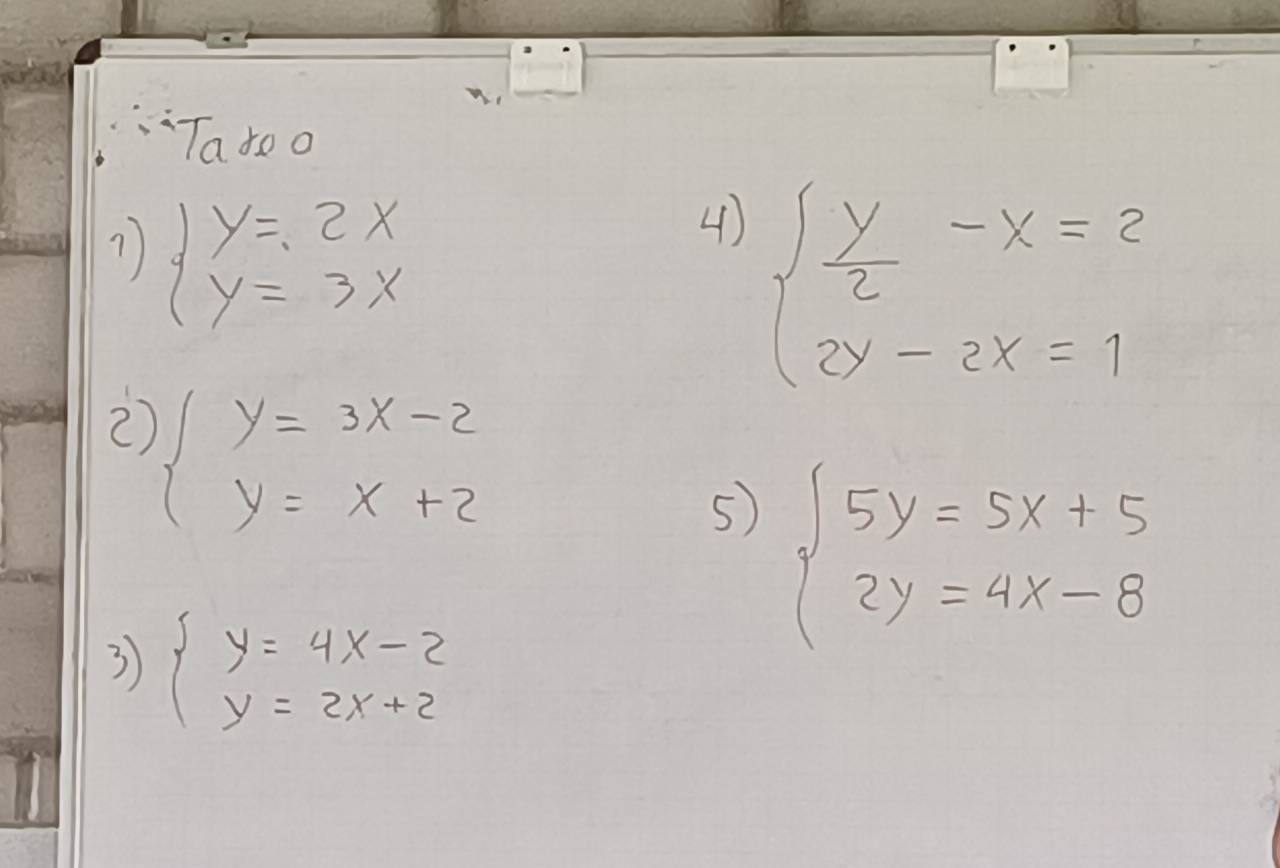 Tarea
1) { y = 2x
y = 3x
2) { y = 3x - 2
y = x + 2
3) { y = 4x - 2
y = 2x + 2
4) { y/2 - x = 2
2y - 2x = 1
5) { 5y = 5x + 5
2y = 4x - 8